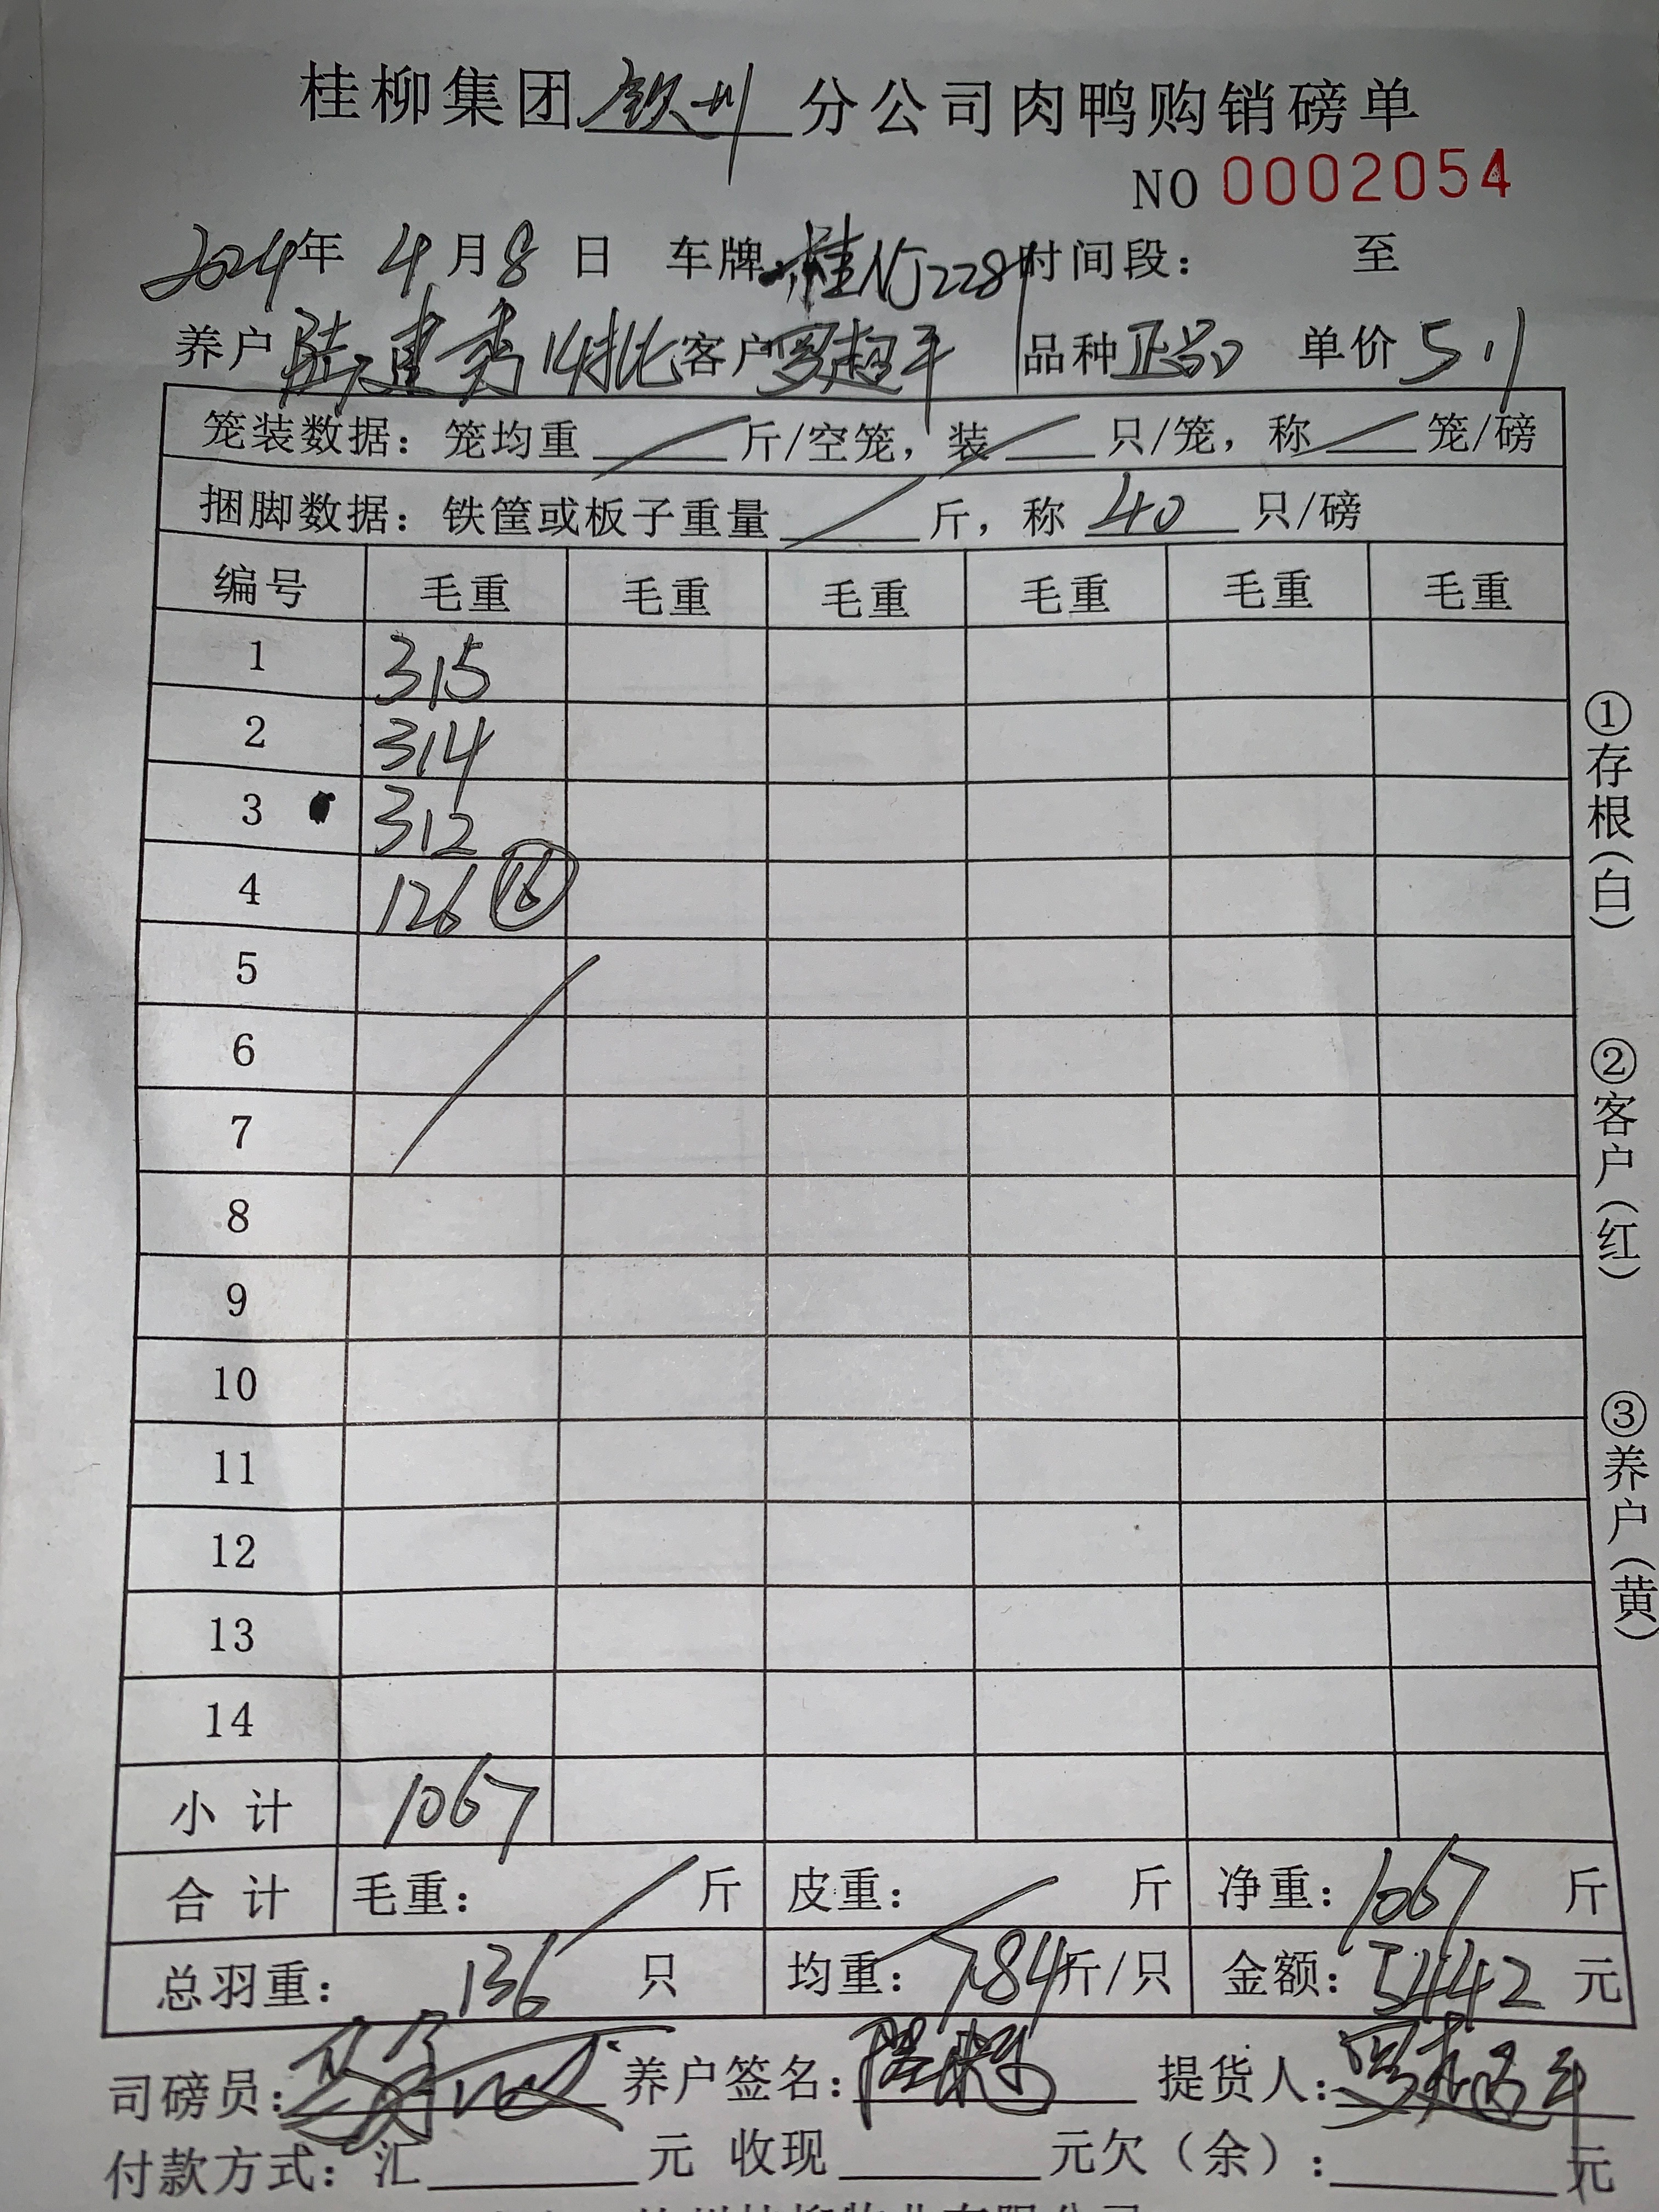 桂柳集团钦州分公司肉鸭购销磅单
NO 0002054
2024年 4月8日 车牌:桂NJ228 时间段: 至
养户 陆建秀14批 客户 罗超平 品种 正品 单价 5.1
笼装数据:笼均重 / 斤/空笼,装 / 只/笼,称 / 笼/磅
捆脚数据:铁筐或板子重量 / 斤,称 40 只/磅
编号 毛重 毛重 毛重 毛重 毛重 毛重
1 315
2 314
3 312
4 126 ⑯
5
6
7
8
9
10
11
12
13
14
小计 1067
合计 毛重: / 斤 皮重: / 斤 净重:1067 斤
总羽重: 136 只 均重:7.84斤/只 金额:5442 元
司磅员: 养户签名: 提货人:罗超平
付款方式:汇 元 收现 元欠(余): 元
①存根(白)
②客户(红)
③养户(黄)